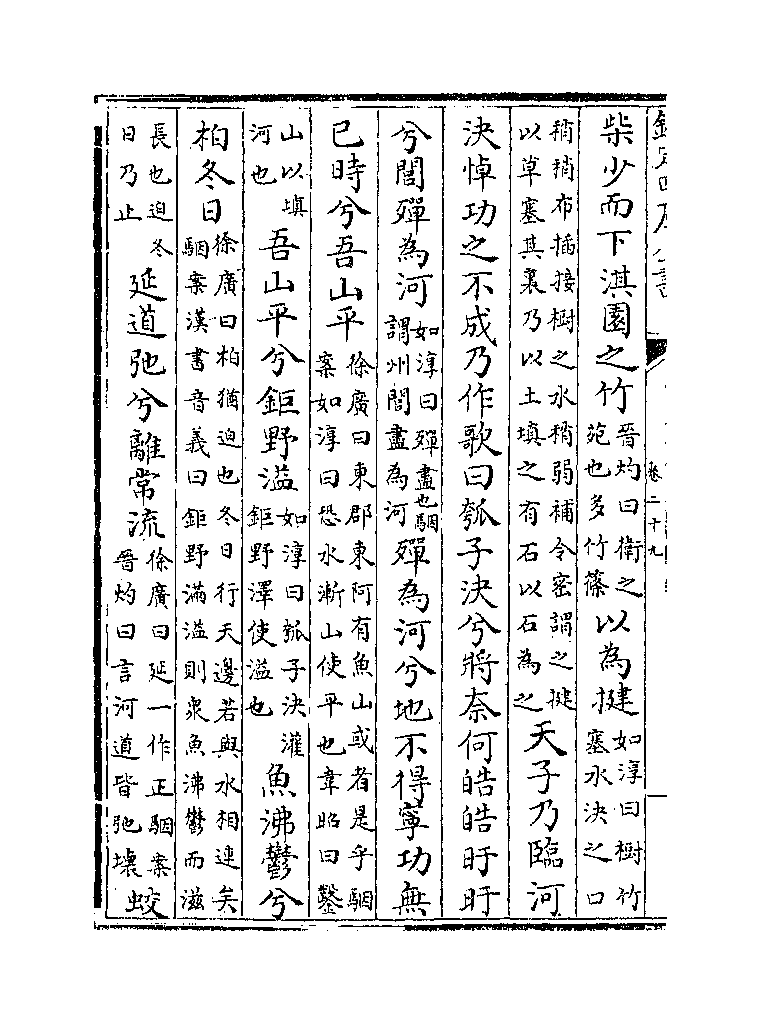 欽定四庫全書
卷二十九
柴少而下淇園之竹晉灼曰衛之苑也多竹篠以為揵如淳曰樹竹塞水決之口
稍稍布插接樹之水稍弱補令密謂之揵以草塞其裏乃以土填之有石以石為之天子乃臨河
決悼功之不成乃作歌曰瓠子決兮將奈何皓皓旴旴
兮閭殫為河如淳曰殫盡也駰謂州閭盡為河殫為河兮地不得寧功無
已時兮吾山平徐廣曰東郡東阿有魚山或者是乎駰案如淳曰恐水漸山使平也韋昭曰鑿
山以填河也吾山平兮鉅野溢如淳曰瓠子決灌鉅野澤使溢也魚沸鬱兮
柏冬日徐廣曰柏猶迫也冬日行天邊若與水相連矣駰案漢書音義曰鉅野滿溢則衆魚沸鬱而滋
長也迫冬日乃止延道弛兮離常流徐廣曰延一作正駰案晉灼曰言河道皆弛壞蛟